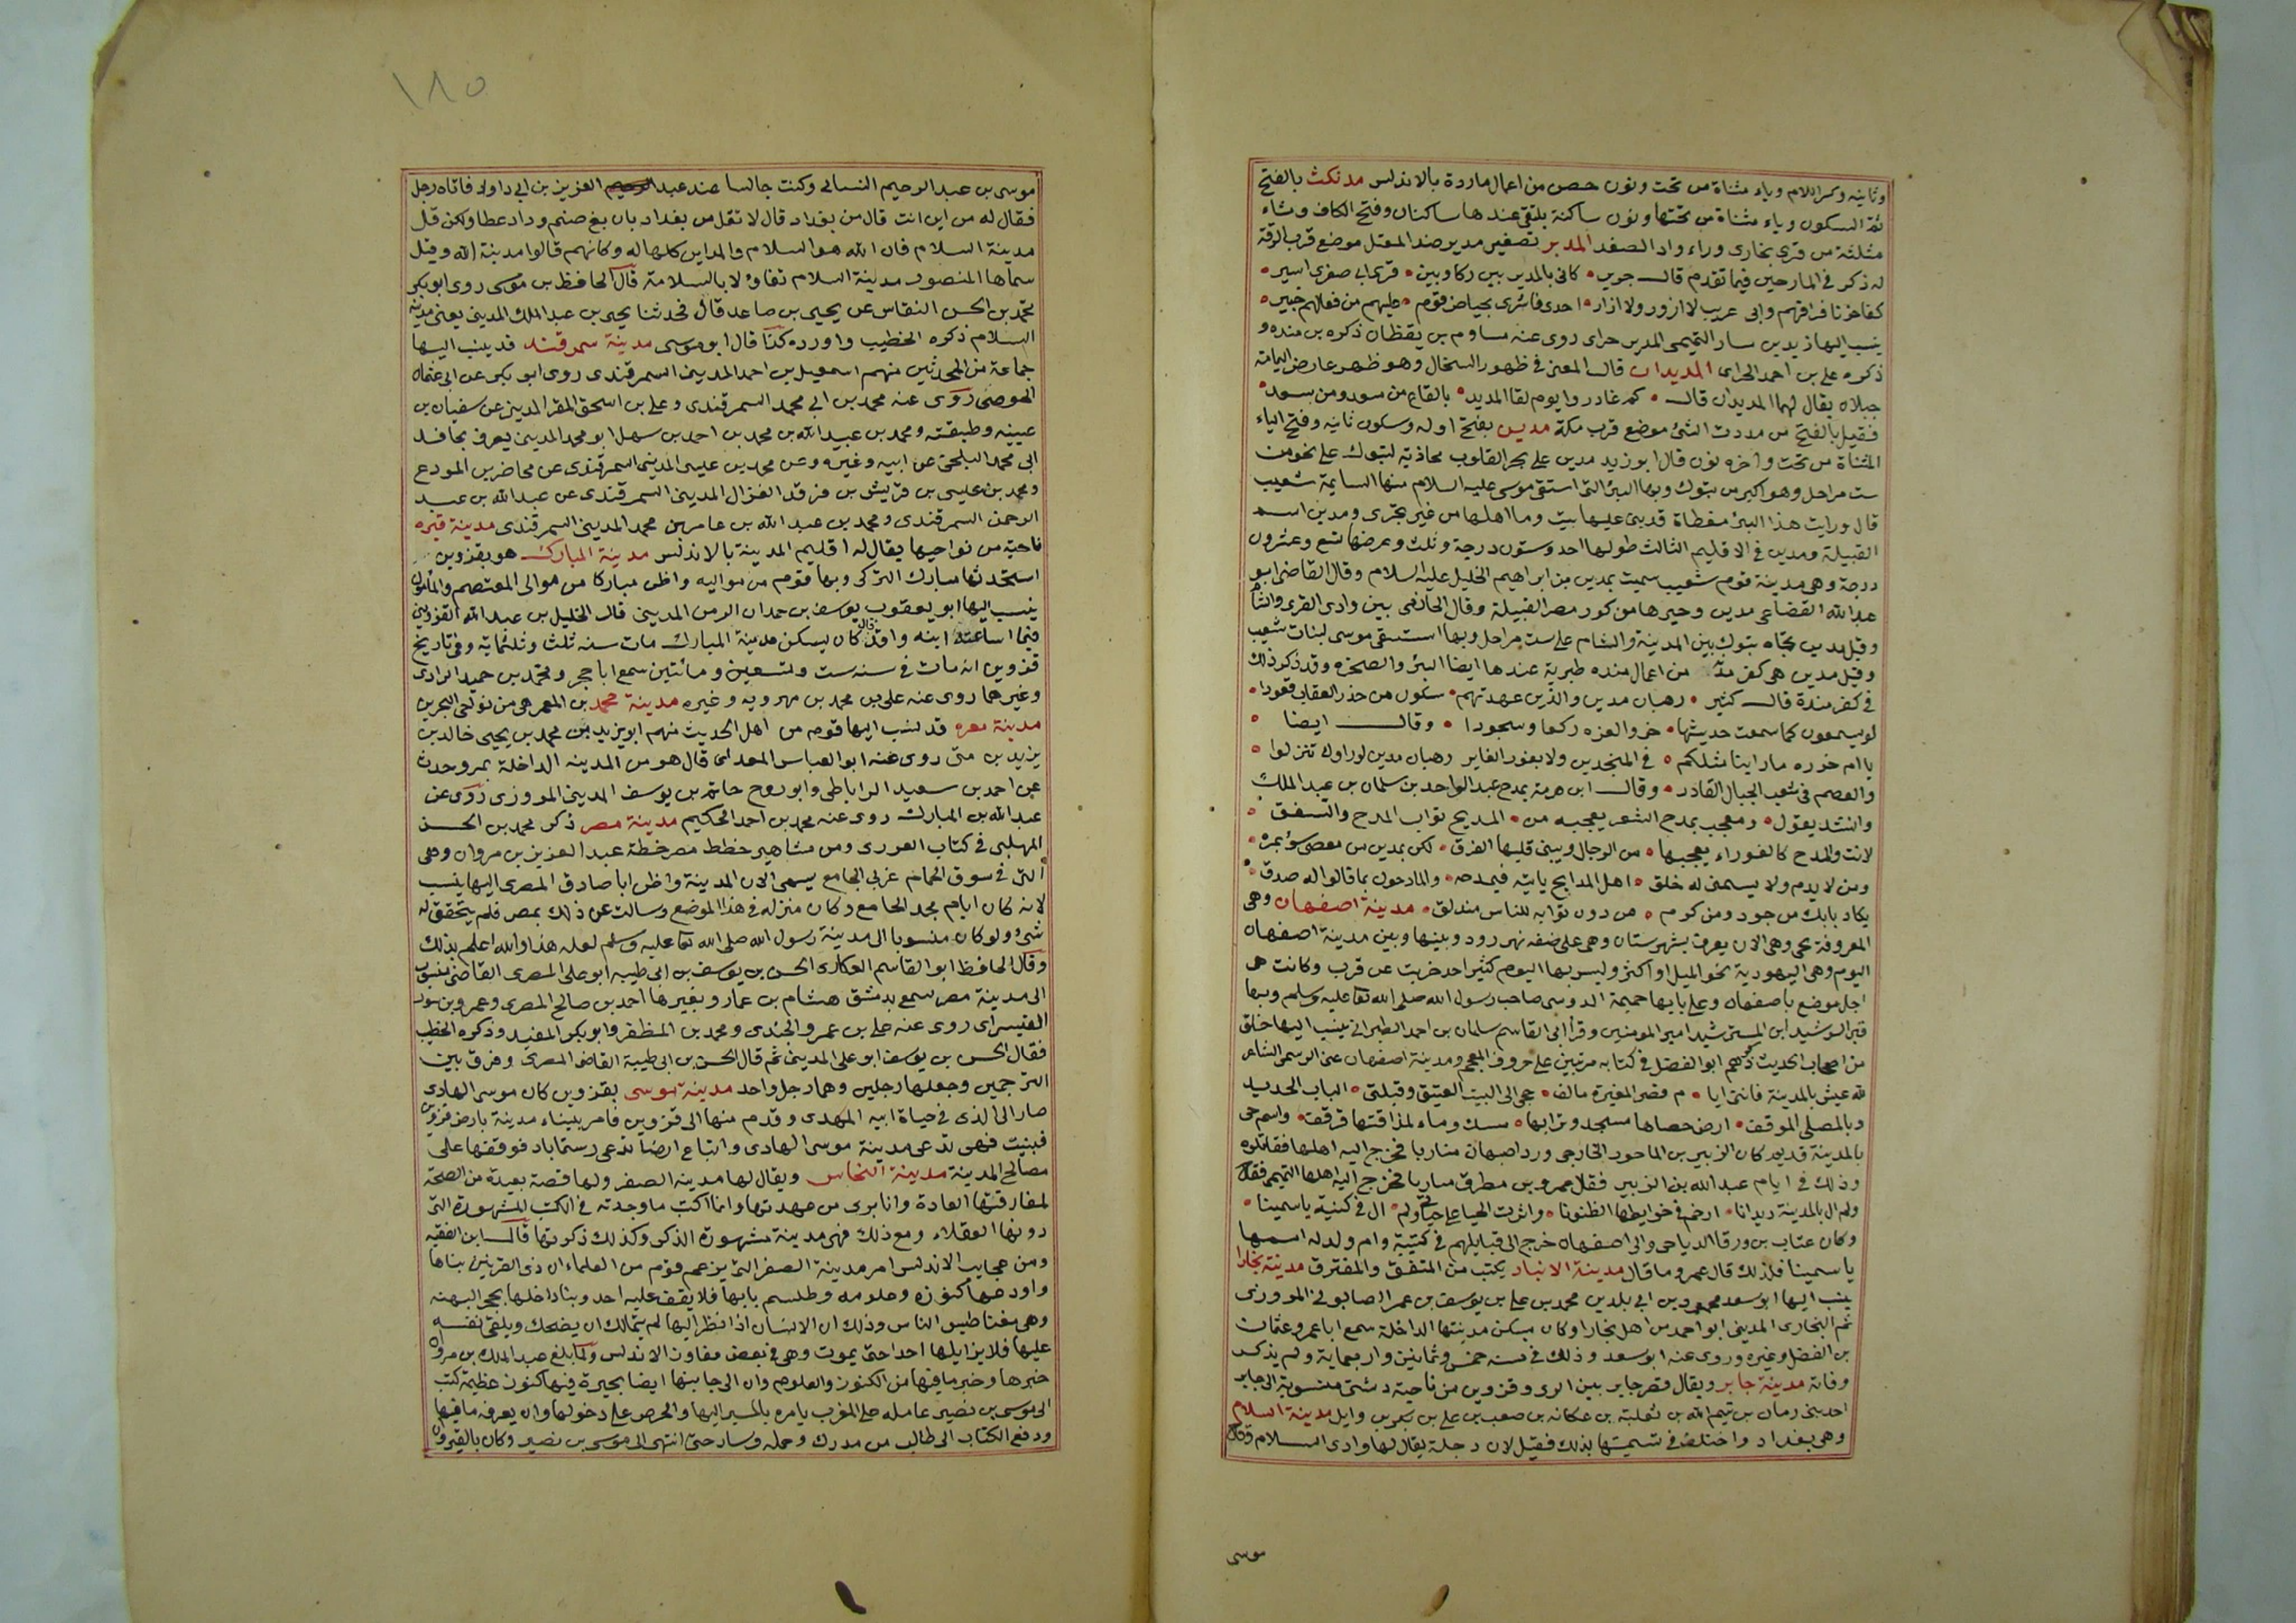 وثانيه وكسر اللام وياء مثناة من تحت ونون حصن من اعمال ماردة بالاندلس مدنكث بالفتح
ثم السكون وياء مثناة من تحتها ونون ساكنة يلتقى عندها ساكنان وفتح الكاف وثاء
مثلثة من قرى بخارى وراء واد الصغد المدبر تصغير مدبر ضد المقبل موضع قرب الرقة
له ذكر فى المارحين فيما تقدم قال جرير • كانى بالمدبر بين زكا وبين • قرى ابى صفرى اسير •
كفا حزنا فراقهم وانى غريب لا ازور ولا ازار • احدى فاشرى بحياض قوم • عليهم من فعالهم حبير •
ينسب اليها زيد بن سيار التميمى المدبرى حرانى روى عنه مساوم بن يقظان ذكره بن منده و
ذكره على بن احمد الحرانى المديدان قال المعنى فى ظهور السخال وهو ظهر عارض اليمامة
جبلان يقال لهما المديدان قال • كم غادروا يوم لقا المديد • بالقاع من سود ومن سود •
فقيل بالفتح من مددت الشئ موضع قرب مكة مدين بفتح اوله وسكون ثانيه وفتح الياء
المثناة من تحت واخره نون قال ابو زيد مدين على بحر القلزم محاذية لتبوك على نحو من
ست مراحل وهو اكبر من تبوك وبها البئر التى استقى موسى عليه السلام منها السايمة شعيب
قال ورايت هذا البئر مغطاة قد بنى عليها بيت وما اهلها من غير تجرى ومدين اسم
القبيلة ومدين فى الاقليم الثالث طولها احد وستون درجة وثلث وعرضها تسع وعشرون
درجة وهى مدينة قوم شعيب سميت بمدين بن ابراهيم الخليل عليه السلام وقال القاضى ابو
عبد الله القضاعى مدين وحيزها من كور مصر القبيلة وقال الحازمى بين وادى القرى والشأم
وقيل مدين تجاه تبوك بين المدينة والشام على ست مراحل وبها استسقى موسى لبنات شعيب
وقيل مدين هى كفر منده من اعمال طبرية عندها ايضا البئر والصخرة وقد ذكر ذلك
فى كفر مندة قال كثير • رهبان مدين والذين عهدتهم • يبكون من حذر العقاب قعودا •
لو يسمعون كما سمعت حديثها • خروا لعزه ركعا وسجودا • وقال ايضا •
يا ام حزره ما راينا مثلكم • فى المنجدين ولا بغور الغاير رهبان مدين لو راوك تنزلوا •
والعصم فى شعب الجبال القادر • وقال ابن هرمة يمدح عبد الواحد بن سلمان بن عبد الملك
وانشد يقول • ومعجب بمدح الشعر يعجبه من • المديح ثواب المدح والشفق •
لانت والمدح كالعذراء يعجبها • من الرجال ويثنى قلبها الفرق • لكن بمدين من مفضى سؤيمرة •
ومن لا يذم ولا يسمى له خلق • اهل المدايح ياتيه فيمدحه • والمادحون بما قالوا له صدق •
يكاد بابك من جود ومن كرم • من دون ثوابه للناس مندلق • مدينة اصفهان وهى
المعروفة بجى وهى الان يعرف بشهرستان وهى على ضفه نهر رود وبينها وبين مدينة اصفهان
اليوم وهى اليهودية نحو الميل او اكثر وليس بها اليوم كثير احد خربت عن قرب وكانت هى
اجل موضع باصفهان وعلى بابها حميمة الدوسى صاحب رسول الله صلى الله تعا عليه وسلم وبها
قبر الرشيد ابن المسترشيد امير المومنين وقرأ ابى القاسم سلمان بن احمد الطبرانى ينسب اليها خلق
من اصحاب الحديث ذكرهم ابو الفضل فى كتابه مرتبين على حروف المعجم ومدينة اصفهان عنى الرسمى الشاعر
لله عيش بالمدينة فاتنى ايا • م قصر المغيرة مالف • حجى الى البيت العتيق وقبلتى • الباب الحديد
وبالمصلى الموقف • ارض حصاها مسجد وترابها • مسك وماء لمذاقتها قرقف • واسم جى
بالمدينة قديم كان الزبير بن الماحوز الخارجى ورد اصبهان مناربا فخرج اليه اهلها فقاتلوه
وذلك فى ايام عبد الله بن الزبير فقال عمرو بن مطرف ساريا فخرج اليه اهلها التميمى فقال
ولم ال بالمدينة ديدانا • ارخم فى خوايطها الظنونا • واثرت الحيا على حياتى ولم • ال فى كتيبة ياسمينا •
وكان عتاب بن ورقا الرياحى والى اصفهان خرج الى قتالهم فى كتيبة وام ولد له اسمها
ياسمينا فلذلك قال عمرو ما قال مدينة الانبار يكتب من المتفق والمفترق مدينة بخارا
ينسب اليها ابو سعد محمود بن ابى بكر بن محمد بن على بن يوسف بن عمر الصابونى المروزى
ثم البخارى المدينى ابو احمد من اهل بخارا وكان يسكن مدينتها الداخلة سمع ابا عمرو عثمان
بن الفضل وغيره وروى عنه ابو سعد وذلك فى سنه خمس وثمانين واربعماية ولم يذكر
وفاته مدينة جابر ويقال قصر جابر بين الرى وقزوين من ناحية دستبى منسوبة الى جابر
احد بنى زمان بن تيم الله بن ثعلبة بن عكانه بن صعب بن على بن بكر بن وايل مدينة السلام
وهى بغداد واختلف فى تسميتها بذلك فقيل لان دجلة يقال لها وادى السلام وقال
موسى
١٨٥
موسى بن عبد الرحيم النسائى وكنت جالسا عند عبد الرحيم العزيز بن ابى داود فاتاه رجل
فقال له من اين انت قال من بغداد قال لا تقل من بغداد بان بغ صنم وداد عطا ولكن قل
مدينة السلام فان الله هو السلام والمداين كلها له وكانهم قالوا مدينة الله وقيل
سماها المنصور مدينة السلام تفاؤلا بالسلامة قال الحافظ بن موسى روى ابو بكر
محمد بن الحسن النقاش عن يحيى بن صاعد قال فحدثنا يحيى بن عبد الملك المدينى يعنى مدينة
السلام ذكره الخطيب واورده كذا قال ابو موسى مدينة سمرقند قد ينسب اليها
جماعة من المحدثين منهم اسمعيل بن احمد المدينى السمرقندى روى ابو بكر عن ابى عثمان
الحوضى روى عنه محمد بن ابى محمد السمرقندى وعلى بن اسحق المقر المدينى عن سفيان بن
عيينه وطبقته ومحمد بن عبيد الله بن محمد بن احمد بن سهل ابو محمد المدينى يعرف بحافد
ابى محمد البلخى عن ابيه وغيره وعن محمد بن عيسى المدينى السمرقندى عن محاضر بن المودع
ومحمد بن عيسى بن قريش بن فرقد الغزال المدينى السمرقندى عن عبد الله بن عبد
الرحمن السمرقندى ومحمد بن عبد الله بن عامر بن محمد المدينى السمرقندى مدينة قبره
ناحية من نواحيها يقال له اقليم المدينة بالاندلس مدينة المبارك هو بقزوين
استحدثها مبارك التركى وبها قوم من مواليه واظن مباركا من موالى المعتصم والمأمون
ينسب اليها ابو يعقوب يوسف بن حمدان الزمن المدينى قال الخليل بن عبد الله القزوينى
فيما اساعته ابنه واقد قال كان يسكن مدينة المبارك مات سنه ثلث وثلثماية وفى تاريخ
قزوين انه مات فى سنه ست وتسعين ومائتين سمع اباحجر ومحمد بن حميد الرازى
وغيرهما روى عنه على بن محمد بن مهرويه وغيره مدينة محمد بن المعمر هى من نواحى البحرين
مدينة مرو قد نسب اليها قوم من اهل الحديث منهم ابو يزيد بن محمد بن يحيى خالد بن
يزيد بن متى روى عنه ابو العباس المعدانى قال هو من المدينه الداخلة بمرو حدث
عن احمد بن سعيد الراباطى وابو روح حاتم بن يوسف المدينى المروزى روى عن
عبد الله بن المبارك روى عنه محمد بن احمد الحكيم مدينة مصر ذكر محمد بن الحسن
المهلبى فى كتاب العزيزى ومن مشاهير خطط مصر خطة عبد العزيز بن مروان وهى
التى فى سوق الحمام غربى الجامع يسمى الان المدينة واظن ابا صادق المصرى اليها ينسب
لانه كان ايام مجد الجامع وكان منزله فى هذا الموضع وسالت عن ذلك بمصر فلم يتحقق له
شئ ولو كان منسوبا الى مدينة رسول الله صلى الله تعا عليه وسلم لعله هذا والله اعلم بذلك
وقال الحافظ ابو القاسم العكارى الحسن بن يوسف بن ابى طيبه ابو على المصرى القاضى منسوب
الى مدينة مصر سمع بدمشق هشام بن عمار وبغيرها احمد بن صالح المصرى وعمرو بن سور
القيسرانى روى عنه على بن عمرو الجندى ومحمد بن المظفر وابو بكر المفيد وذكره الخطيب
فقال الحسن بن يوسف ابو على المدينى ثم قال الحسن بن ابى طيبة القاضى المصرى وفرق بين
الترجمين وجعلها رجلين وهما رجل واحد مدينة موسى بقزوين كان موسى الهادى
صار الى الرى فى حياة ابيه المهدى وقدم منها الى قزوين فامر ببناء مدينة بارض قزوين
فبنيت فهى تدعى مدينة موسى الهادى وابتاع ارضا تدعى رستماباد فوقفها على
مصالح المدينة مدينة النحاس ويقال لها مدينه الصفر ولها قصة بعيدة من الصحة
لمفارقتها العادة وانا برى من عهدتها وانما اكتب ما وجدته فى الكتب المشهورة التى
دونها العقلاء ومع ذلك فهى مدينة مشهورة الذكر وكذلك ذكرتها قال ابن الفقيه
ومن عجايب الاندلس امر مدينة الصفر التى يزعم قوم من العلماء ان ذى القرنين بناها
واودعها كنوزه وعلومه وطلسم بابها فلا يقف عليه احد وبنا داخلها بحجر البهته
وهى مغناطيس الناس وذلك ان الانسان اذا نظر اليها لم يتمالك ان يضحك ويلقى نفسه
عليها فلا يزايلها احدا حتى يموت وهى فى بعض مفاوز الاندلس ولما بلغ عبد الملك بن مروان
خبرها وخبر ما فيها من الكنوز والعلوم وان الى جانبها ايضا بحيرة فيها كنوز عظيمة كتب
الى موسى بن نصير عامله على المغرب يامره بالمسير اليها والحرص على دخولها وان يعرفه ما فيها
ودفع الكتاب الى طالب من مدرك وحمله وسار حتى انتهى الى موسى بن نصير وكان بالقيروان